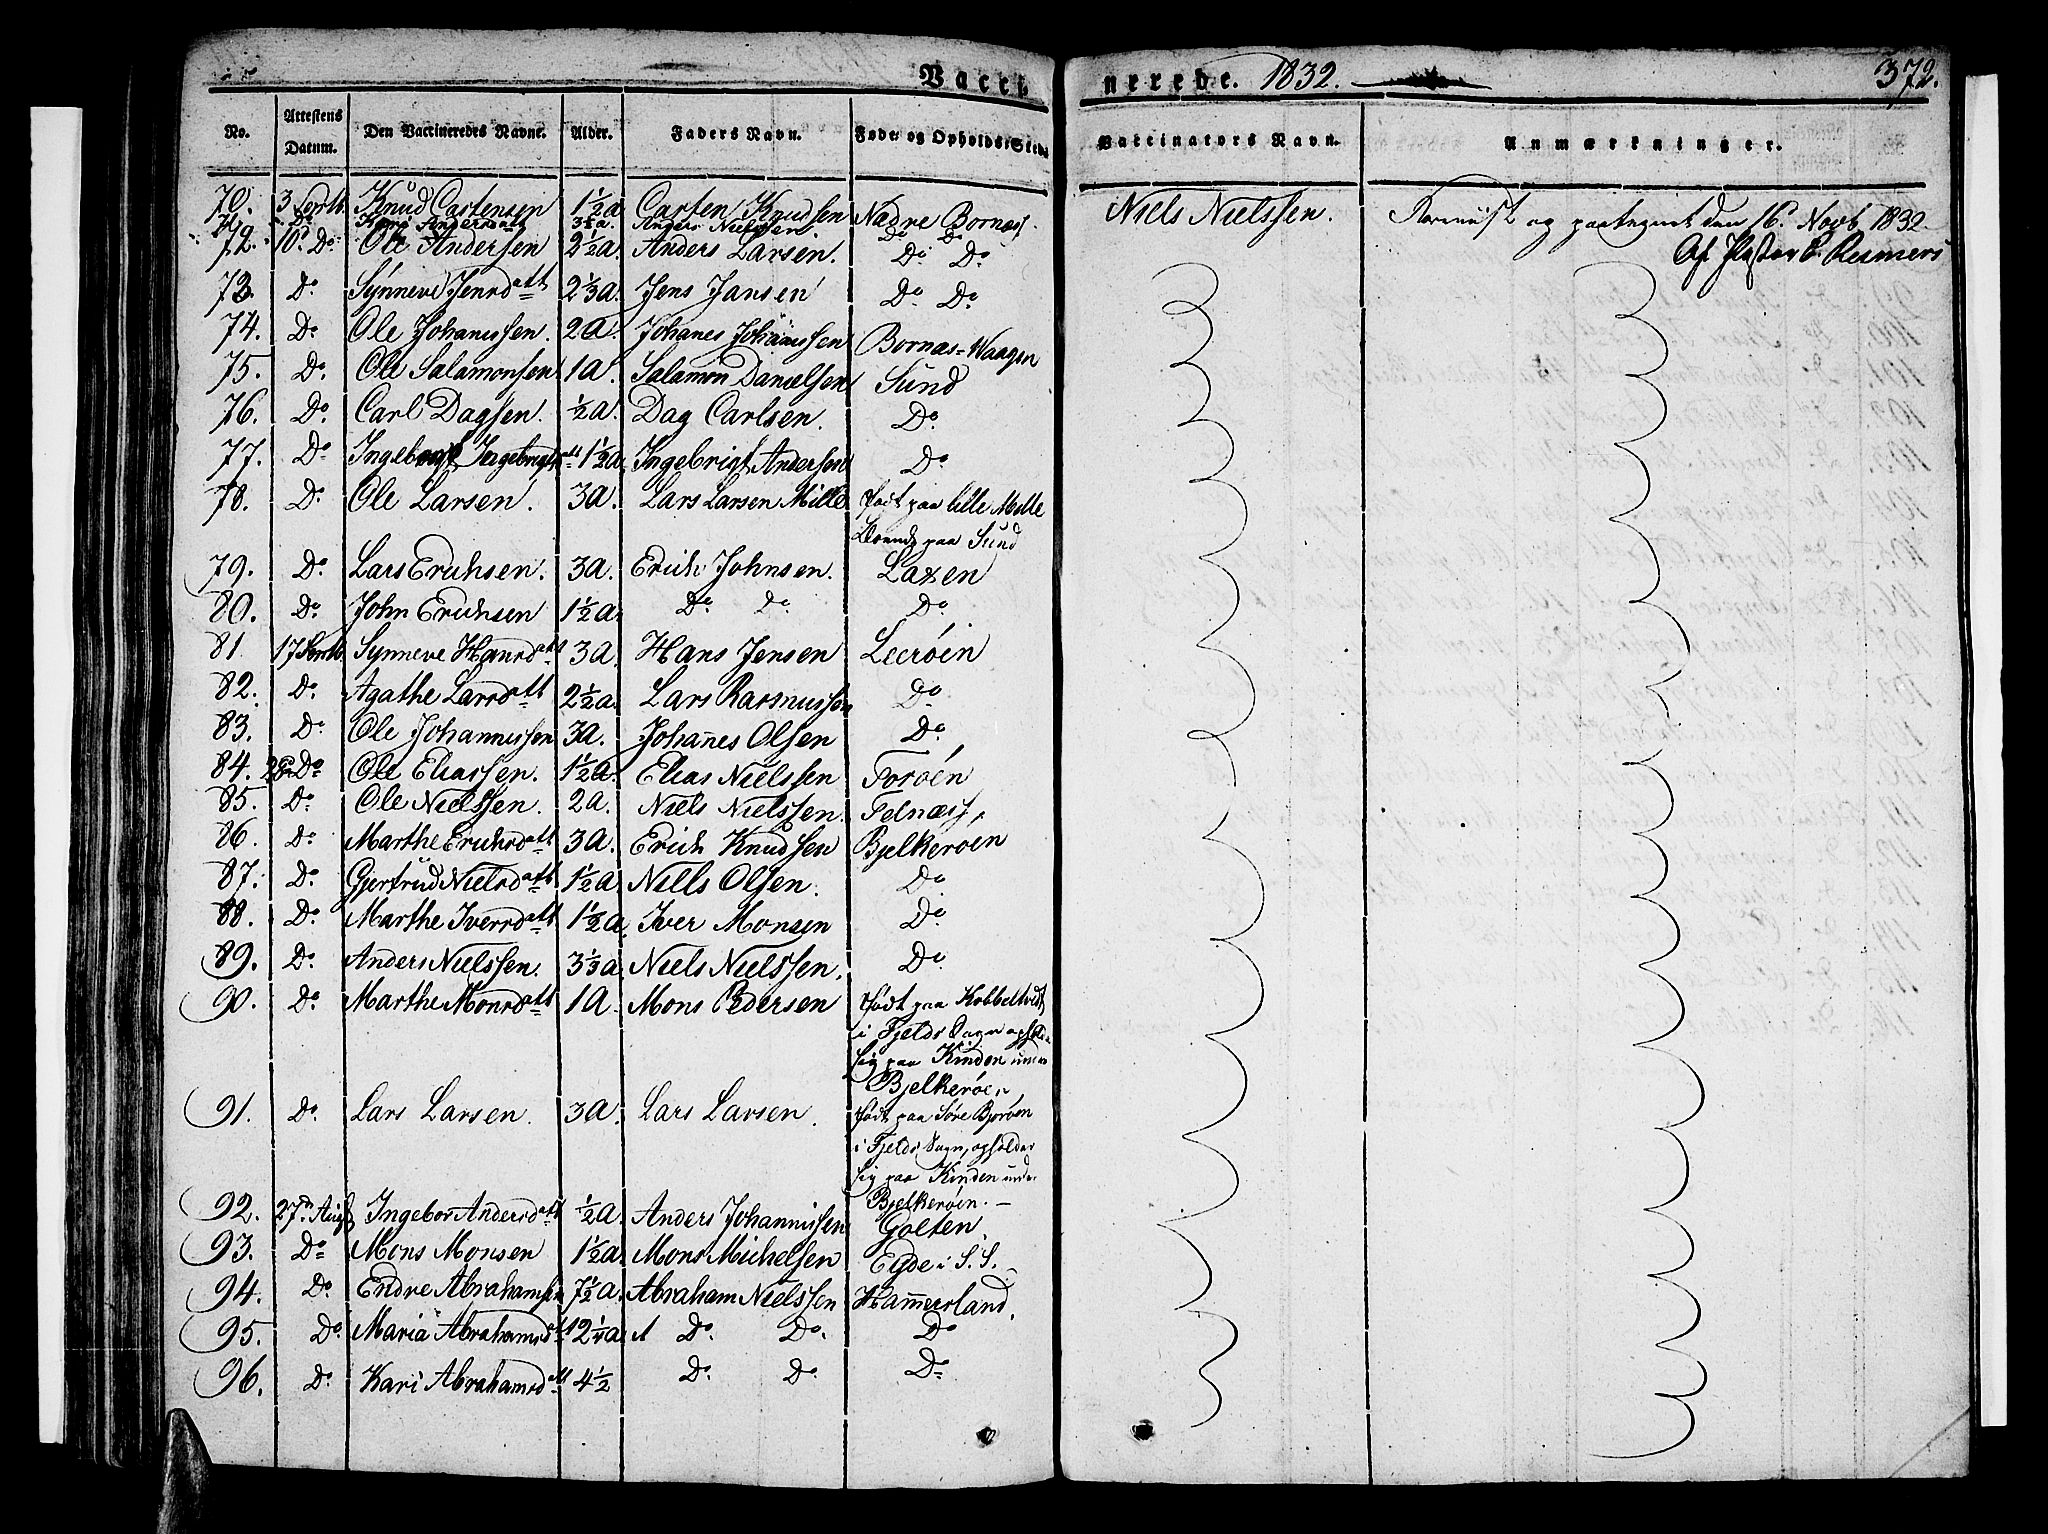 Vacci
nerede. 1832.
372.
No. Attestens Datum. Den Vaccineredes Navne. Alder. Faders Navn. Føde og Opholds-Sted
Vaccinators Navn. Anmærkninger.
70. 3 Septb. Knud Carstensen 1½a Carsten Knudsen Nædre Bornæs. Niels Nielssen.
71. Do 3¾a. Anders Nielssen. Do Do
og paategnet den 16d Novb 1832.
72. 10d Do Ole Andersen 2½a. Anders Larsen. Do Do
Af Pastor Resmers
73. Do Synneve Jensdatt 2⅓a. Jens Jansen Do Do
74. Do Ole Johannssen. 2a. Johanes Johannssen Bornæs-Waagen
75. Do. Ole Salamonsen 1a. Salamon Danielsen Sund
76. Do. Carl Dagsen. ½a. Dag Carlsen. Do.
77. Do 1½a. Ingebrigt Andersen Do
78. Do Ole Larsen. 3a. Lars Larsen Mille født paa lille Mille
paa Sund
79. Do. Lars Erichsen. 3a. Erich Johnsen. Laxen
80. Do. John Erichsen 1½a. Do Do Do
81. 17 Septb Synneve Hansdatt 3a. Hans Jensen Leerøen
82. Do. Agathe Larsdatt 2½a. Lars Rasmussen Do
83. Do Ole Johannissen 3a. Johan̄es Olsen Do
84. Do Ole Eliassen. 1½a. Elias Nielssen Toröen
85. Do. Ole Nielssen. 2a. Niels Nielssen. Telnæss,
86. Do. Marthe Erichsdatt 3a. Erich Knudssen Bjelkeroen
87. Do. Gjertrud Nielsdatt 1½a. Niels Olsen. Do
88. Do. Marthe Iversdatt 1½a. Iver Monsen Do
89. Do. Anders Nielssen. 3⅓a Niels Nielssen. Do
90. Do Marthe Monsdatt 1a. Mons Pedersen født paa Kobbeltvedt
i Fjelds Sogn opholder
sig paa Kinden under
Bjelkerøen
91. Do. Lars Larsen. 3a. Lars Larsen. født paa Søre Bjorøen
i Fjelds Sogn, opholder
sig paa Kinden under
Bjelkerøen. –
92. 27d Augst Ingebor Andersdatt ½a. Anders Johannissen Golten.
93. Do Mons Monsen 1½a. Mons Michelsen Eyde i S. S.
94. Do. Endre Abrahamsen 7½a. Abraham Nielssen Ham̄ersland.
95. Do. Maria Abrahamsdtt 12¼a Do. Do. Do
96. Do. Kari Abrahamsdatt 4½ Do. Do Do